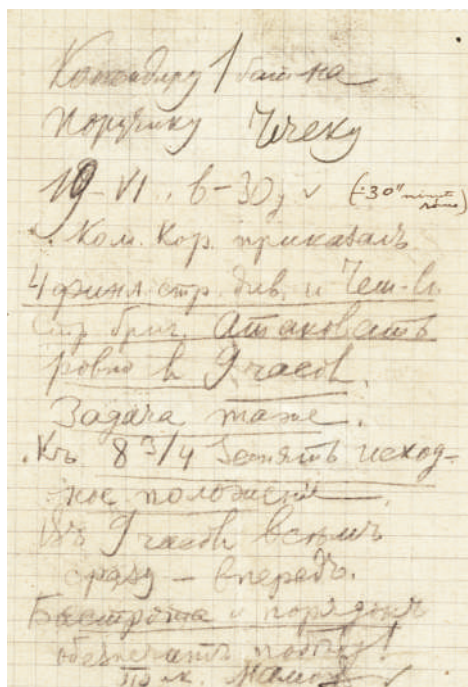 Командиру 1 бат-на
Поручику Чечеку
19-VI. 6-30 у
Ком. Кор. приказалъ
4 финл. стр. див. и Чеш-сл.
стр. бриг. Атаковать
ровно в 9 часов.
Задача таже.
Къ 8 3/4 Занять исход-
ное положение
Въ 9 часов всѣмъ
сразу – впередъ.
Быстрота и порядокъ
обезпечатъ победу!